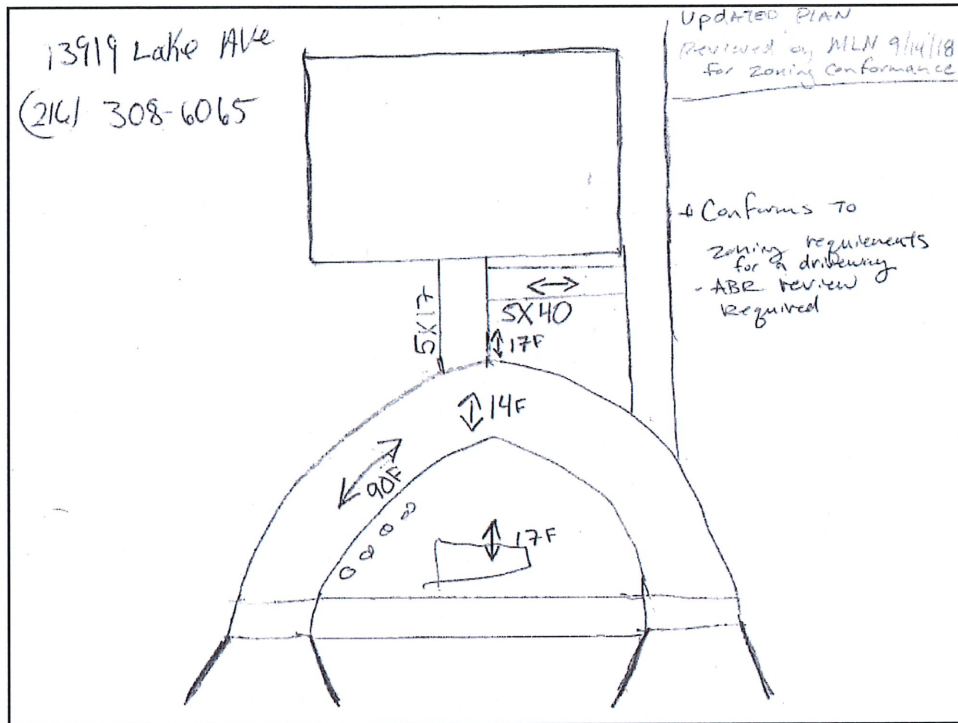 13919 Lake Ave
(216) 308-6065
UPDATED PLAN
Reviewed by MLN 9/14/18
for zoning conformance
* Conforms To
zoning requirements
for a driveway
- ABR review
Required
5X17
5X40
17F
14F
90F
17F